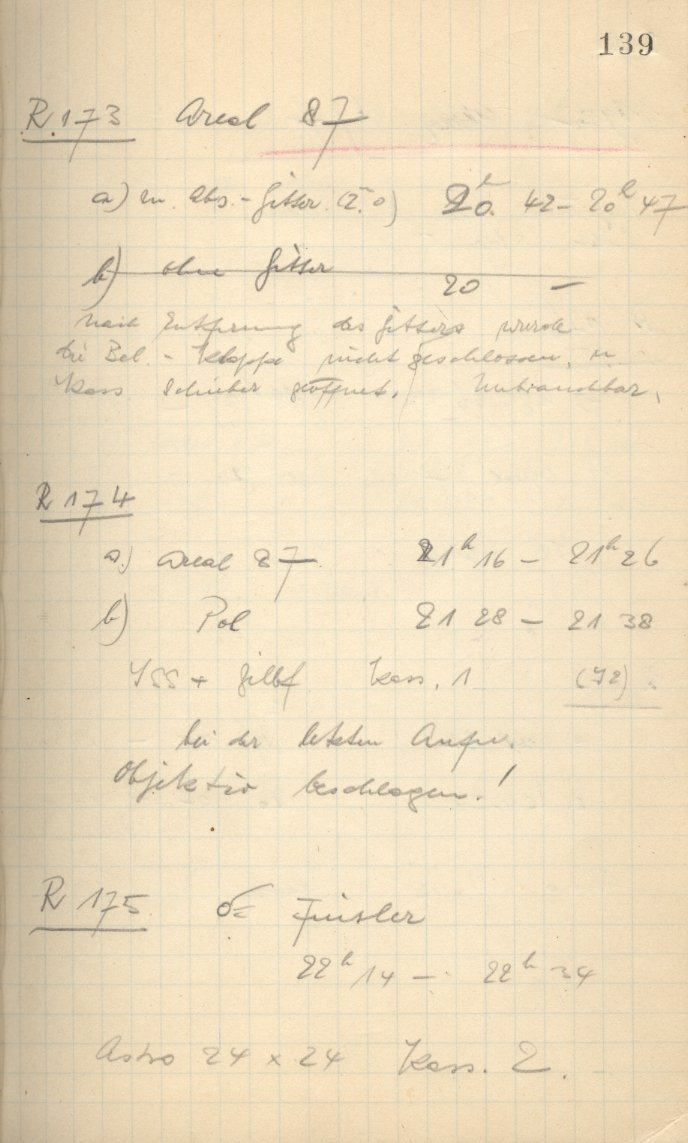 139
R 173 Areal 87
a) m. Abs.-Gitter (2.0) 20h 42 – 20h 47
b) ohne Gitter 20 —
Nach Entfernung des Gitters wurde
die Bel.-Klappe nicht geschlossen, u.
Kass Schieber geöffnet. Unbrauchbar.
R 174
a) Areal 87 21h 16 – 21h 26
b) Pol 21 28 – 21 38
ISS + Gelbf Kass. 1 (72)
bei der letzten Aufn.
Objektiv beschlagen!
R 175 Finsler
22h 14 – 22h 34
Astro 24 x 24 Kass. 2.